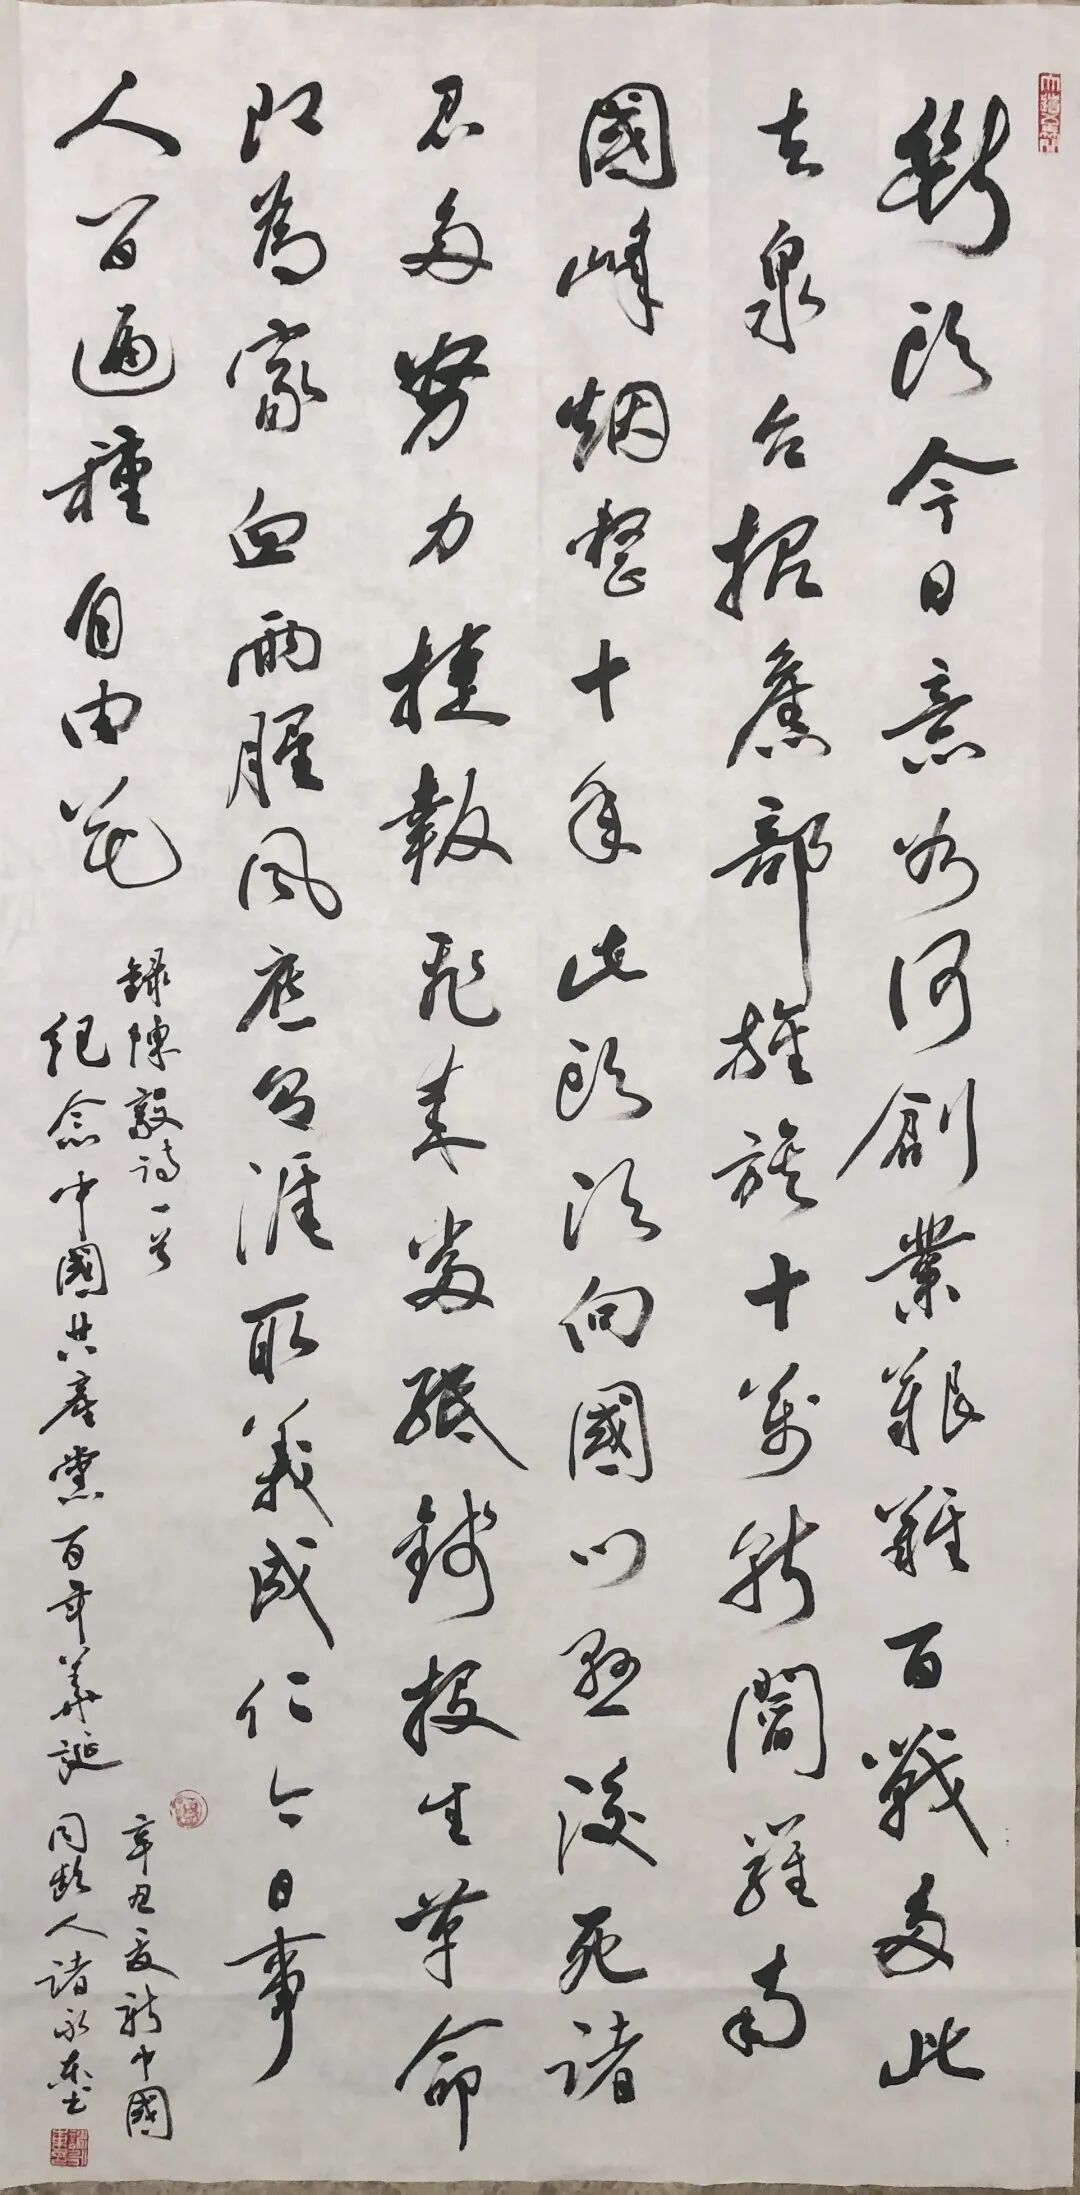 斷头今日意如何創業艱難百戰多此
去泉台招舊部旌旗十萬斬閻羅南
國峰烟整十年此头须向國门悬後死诸
君多努力捷報飛来當紙錢投生革命
即為家血雨腥風應有涯取義成仁今日事
人间遍種自由花
録陳毅诗一首
纪念中國共產黨百年華誕
辛丑夏新中國
同龄人诸永东书